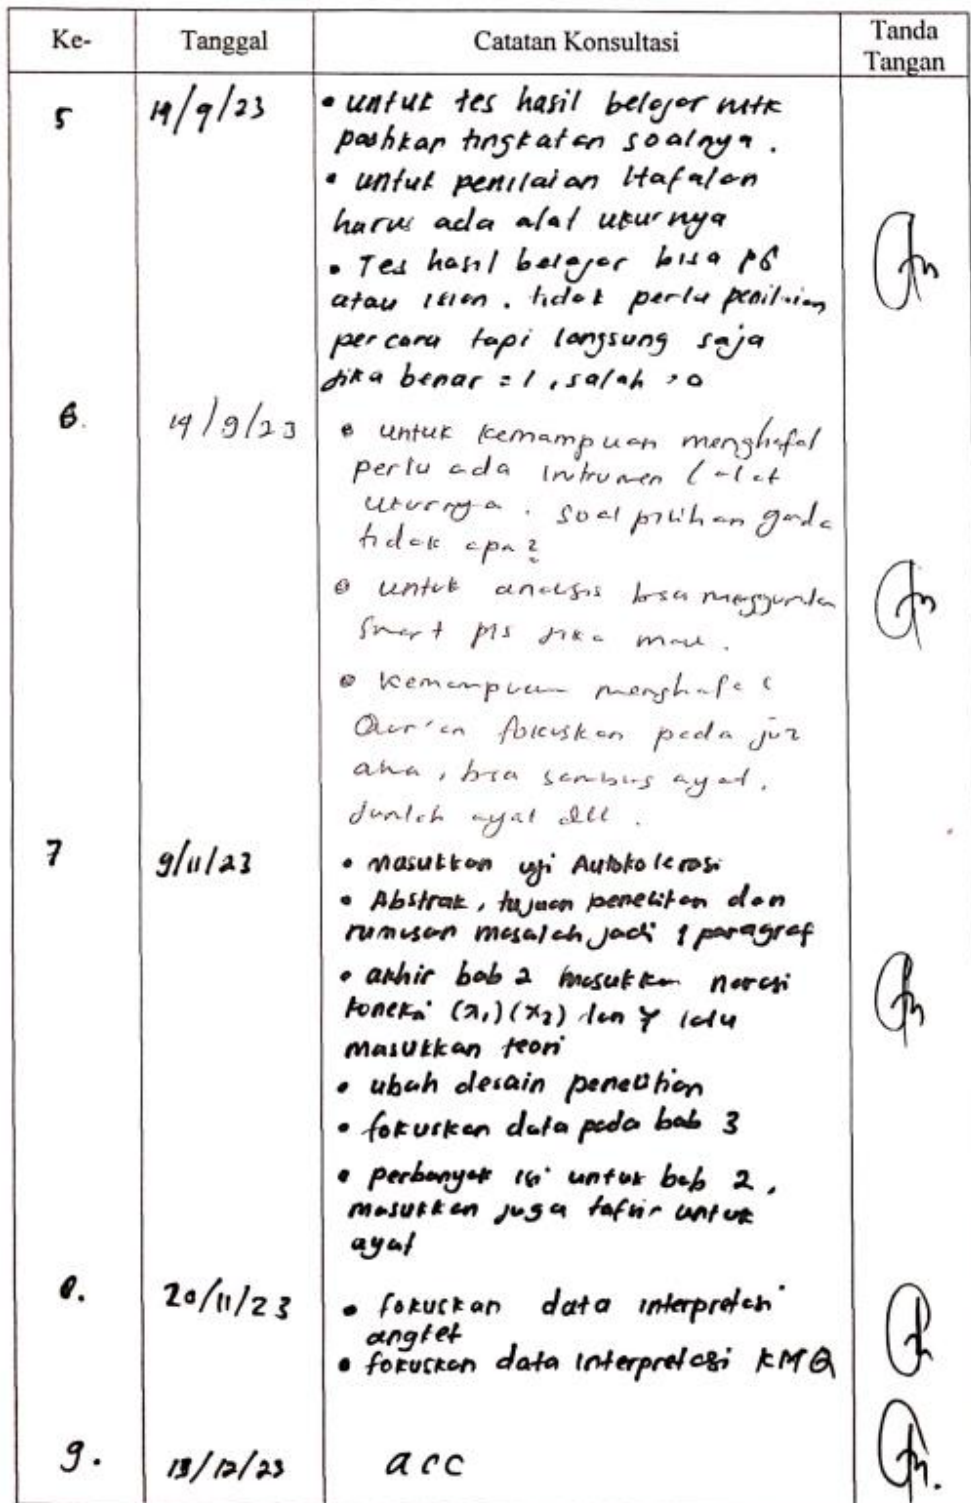 Ke- Tanggal Catatan Konsultasi Tanda Tangan
5 19/9/23 • untuk tes hasil belajar mtk
pastikan tingkatan soalnya.
• untuk penilaian Hafalan
harus ada alat ukurnya
• Tes hasil belajar bisa PG
atau isian. tidak perlu penilaian
per cara tapi langsung saja
jika benar = 1, salah = 0
6. 19/9/23 • untuk kemampuan menghafal
perlu ada intrumen (alat
ukurnya. soal pilihan ganda
tidak apa2
• untuk analisis bisa menggunakan
Smart pls jika mau.
• kemampuan menghafal
Qur'an fokuskan pada juz
ama, bisa sambung ayat,
Jumlah ayat dll.
7 9/11/23 • masukkan uji Autokolerasi
• Abstrak, tujuan penelitian dan
rumusan masalah jadi 1 paragraf
• akhir bab 2 masukkan narasi
koneksi (x1)(x2) dan Y lalu
masukkan teori
• ubah desain penelitian
• fokuskan data pada bab 3
• perbanyak isi untuk bab 2,
masukkan juga tafsir untuk
ayat
8. 20/11/23 • fokuskan data interpretasi
angket
• fokuskan data interpretasi KMQ
9. 13/12/23 acc